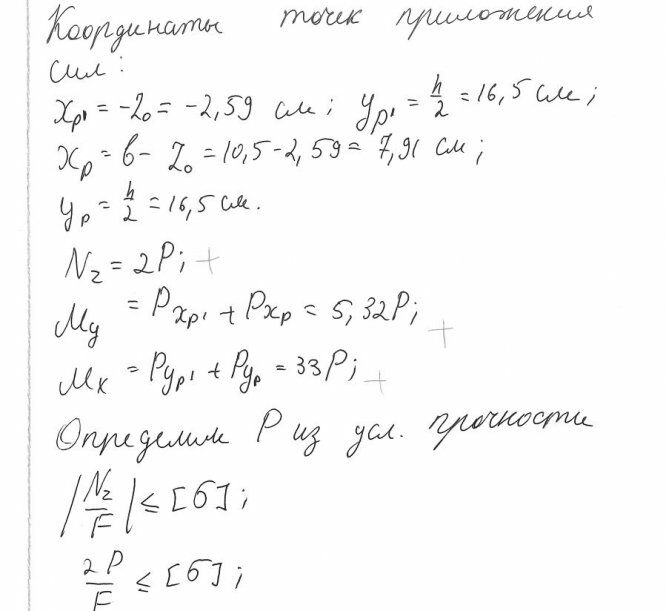 Координаты точек приложения
сил:
xp' = -z₀ = -2,59 см; yp' = h/2 = 16,5 см;
xp = b - z₀ = 10,5 - 2,59 = 7,91 см;
yp = h/2 = 16,5 см.
Nz = 2P; +
My = Pxp' + Pxp = 5,32P; +
Mx = Pyp' + Pyp = 33P; +
Определим P из усл. прочности
|Nz/F| ≤ [σ];
2P/F ≤ [σ];